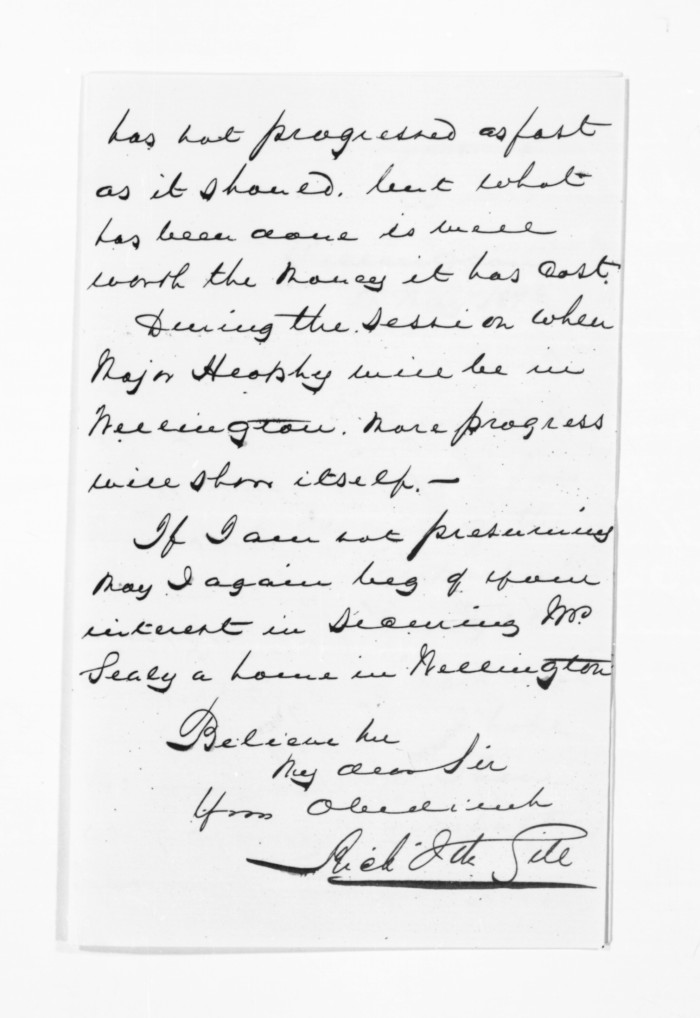 has not progressed as fast
as it should. but what
has been done is well
worth the money it has cost.
During the session when
Major Heaphy will be in
Wellington. more progress
will show itself. —
If I am not presuming
may I again beg of your
interest in securing Mrs
Sealy a home in Wellington
Believe me
My dear Sir
Your Obedient
Rich Jth Gill